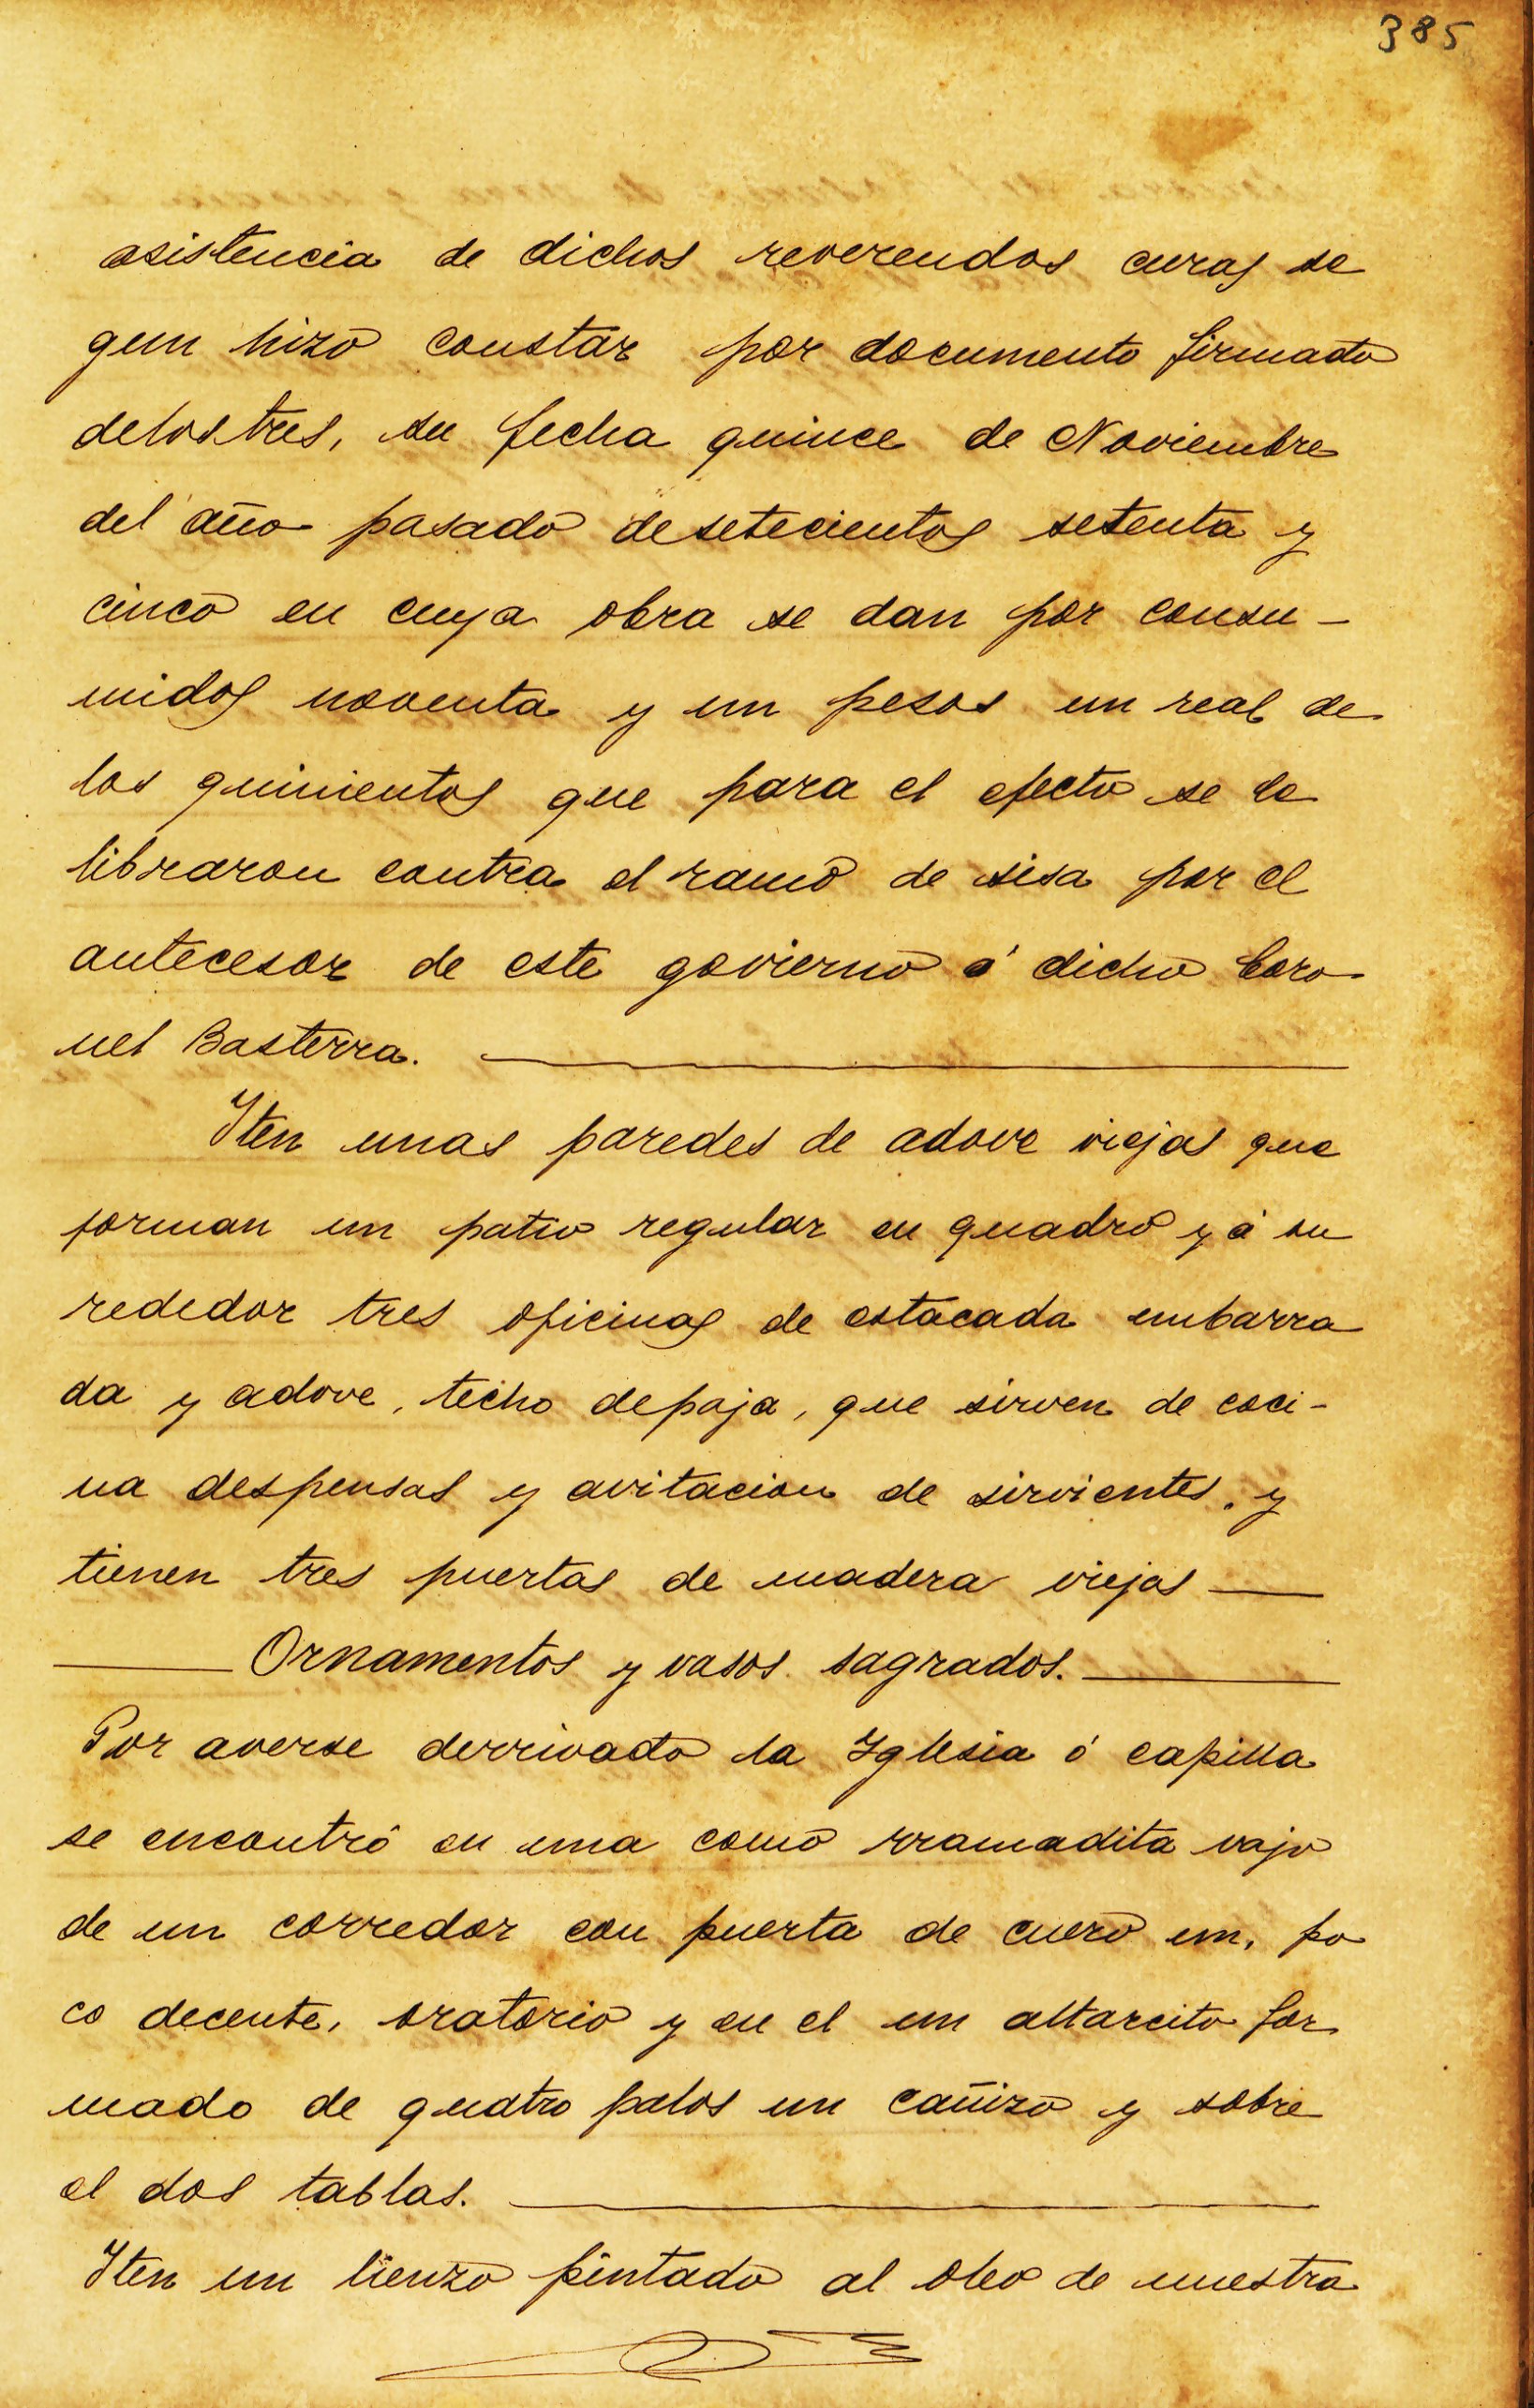 385
asistencia de dichos reverendos curas se
gun hizo constar por documento firmado
delos tres, su fecha quince de Noviembre
del año pasado de setecientos setenta y
cinco en cuya obra se dan por consu-
midos noventa y un pesos un real de
los quinientos que para el efecto se le
libraron contra el ramo de sisa por el
antecesor de este govierno á dicho Coro
nel Basterra.
Iten unas paredes de adove viejas que
forman un patio regular en quadro y á su
rededor tres oficinas de estacada embarra
da y adove, techo de paja, que sirven de coci-
na despensas y avitacion de sirvientes, y
tienen tres puertas de madera viejas
Ornamentos y vasos sagrados.
Por averse derrivado la Iglesia ó capilla
se encontró en una como rramadita vajo
de un corredor con puerta de cuero un, po
co decente, oratorio y en el un altarcito for
mado de quatro palos un cañizo y sobre
el dos tablas.
Iten un lienzo pintado al oleo de nuestra